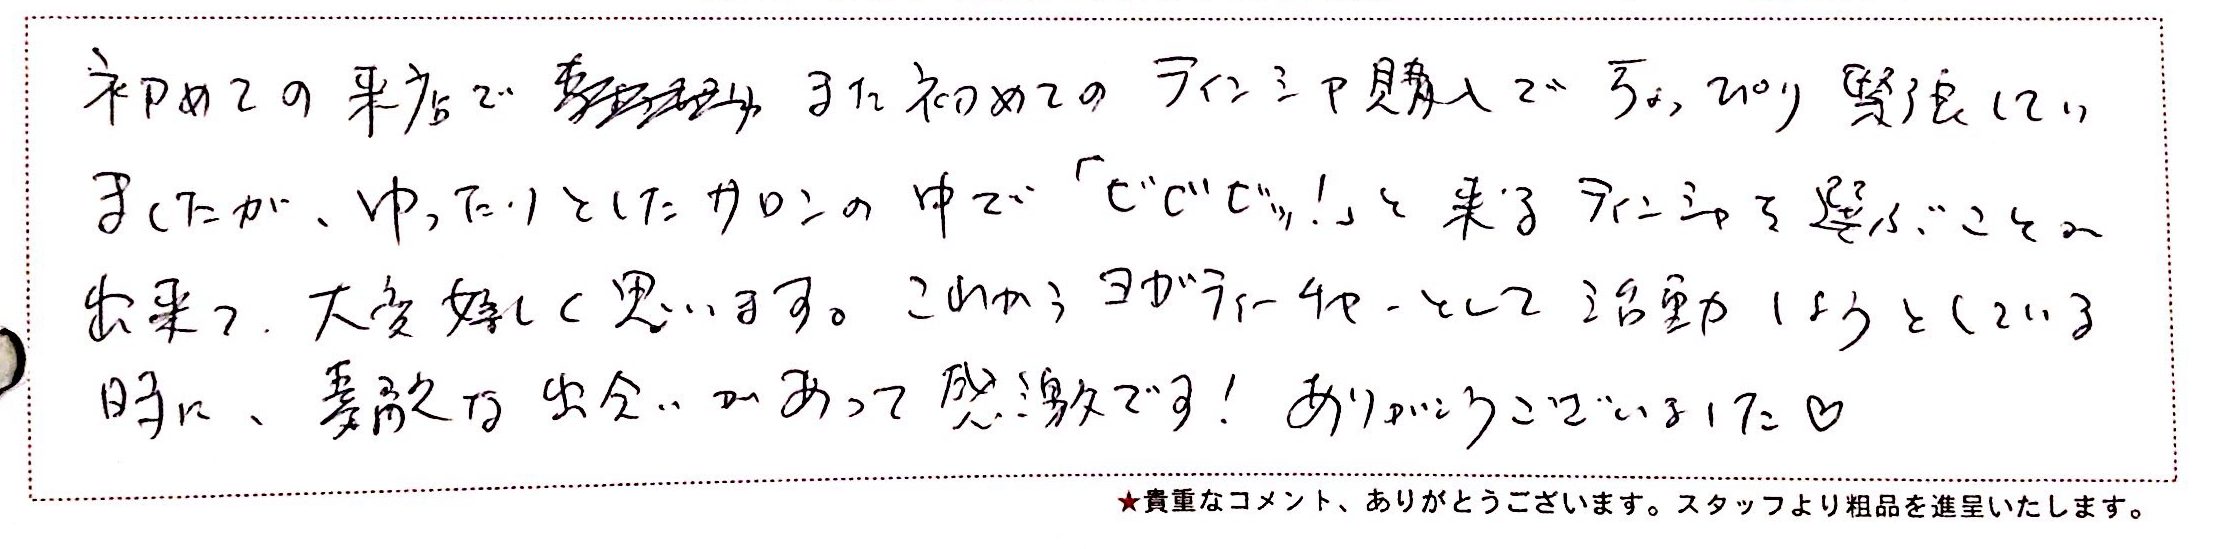 初めての来店で また初めてのティンシャ購入でちょっぴり緊張してい
ましたが、ゆったりとしたサロンの中で「ビビビッ!」と来るティンシャを選ぶことが
出来て、大変嬉しく思います。これからヨガティーチャーとして活動しようとしている
時に、素敵な出会いがあって感激です!ありがとうございました♡
★貴重なコメント、ありがとうございます。スタッフより粗品を進呈いたします。